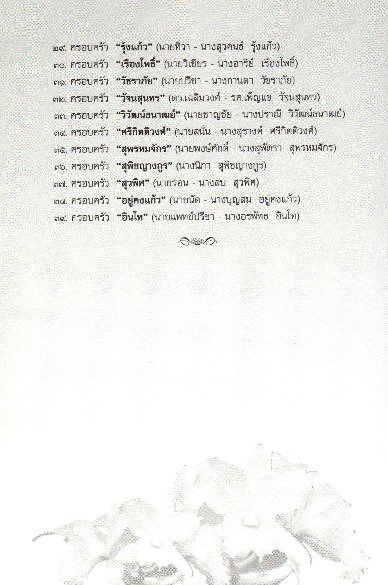 ๒๙. ครอบครัว "รุ้งแก้ว" (นายทิวา - นางสุวคนธ์ รุ้งแก้ว)
๓๐. ครอบครัว "เรืองโพธิ์" (นายวิเชียร - นางอารีย์ เรืองโพธิ์)
๓๑. ครอบครัว "วัชราภัย" (นายปรีชา - นางกานดา วัชราภัย)
๓๒. ครอบครัว "วัจนสุนทร" (ดร.เฉลิมวงศ์ - รศ.เพ็ญแข วัจนสุนทร)
๓๓. ครอบครัว "วิวัฒน์ธนาฒย์" (นายชาญชัย - นางปราณี วิวัฒน์ธนาฒย์)
๓๔. ครอบครัว "ศรีกิตติวงศ์" (นายสนั่น - นางสุรางค์ ศรีกิตติวงศ์)
๓๕. ครอบครัว "สุพรหมจักร" (นายพงษ์ศักดิ์ - นางสุพัตรา สุพรหมจักร)
๓๖. ครอบครัว "สุพิชญางกูร" (นางนิภา สุพิชญางกูร)
๓๗. ครอบครัว "สุวพิศ" (นายรอน - นางลบ สุวพิศ)
๓๘. ครอบครัว "อยู่คงแก้ว" (นายนัด - นางบุญสม อยู่คงแก้ว)
๓๙. ครอบครัว "อินโท" (นายแพทย์ปรีชา - นางอรพัทธ อินโท)